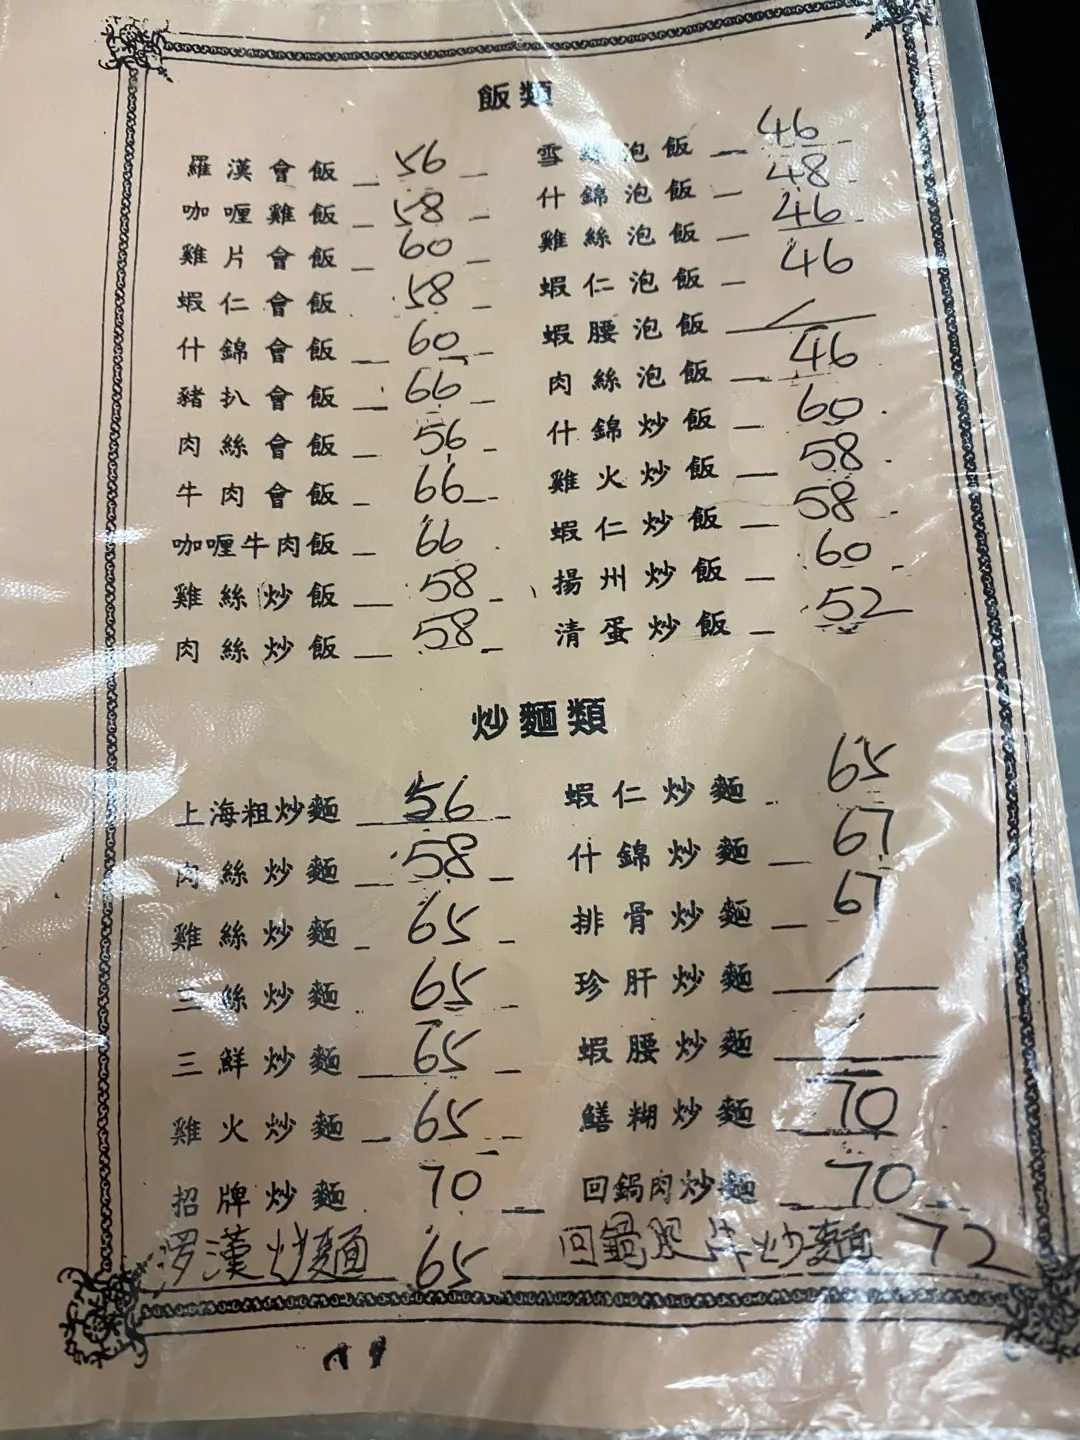 飯類
羅漢會飯 56
咖喱雞飯 58
雞片會飯 60
蝦仁會飯 58
什錦會飯 60
豬扒會飯 66
肉絲會飯 56
牛肉會飯 66
咖喱牛肉飯 66
雞絲炒飯 58
肉絲炒飯 58
雪絲泡飯 46
什錦泡飯 48
雞絲泡飯 46
蝦仁泡飯 46
蝦腰泡飯
肉絲泡飯 46
什錦炒飯 60
雞火炒飯 58
蝦仁炒飯 58
揚州炒飯 60
清蛋炒飯 52
炒麵類
上海粗炒麵 56
肉絲炒麵 58
雞絲炒麵 65
三絲炒麵 65
三鮮炒麵 65
雞火炒麵 65
招牌炒麵 70
罗漢炒麵 65
蝦仁炒麵 65
什錦炒麵 67
排骨炒麵 67
珍肝炒麵
蝦腰炒麵
鱔糊炒麵 70
回鍋肉炒麵 70
回鍋肥牛炒麵 72